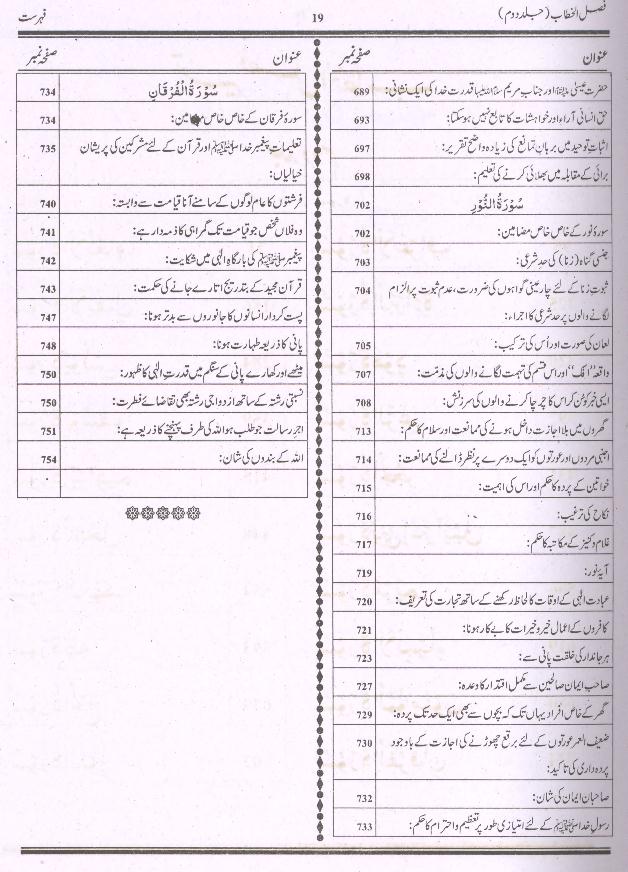 فصل الخطاب (جلد دوم)
19
فہرست
عنوان
صفحہ نمبر
حضرت عیسیٰؑ اور جناب مریمؑ قدرت خدا کی ایک نشانی:
689
حق انسانی آراء اور خواہشات کا تابع نہیں ہوسکتا:
693
اثبات توحید میں برہان تمانع کی زیادہ واضح تقریر:
697
برائی کے مقابلہ میں بھلائی کرنے کی تعلیم:
698
سُوْرَةُ النُّوْرِ
702
سورۂ نور کے خاص خاص مضامین:
702
جنسی گناہ (زنا) کی حد شرعی:
703
ثبوت زنا کے لئے چار عینی گواہوں کی ضرورت، عدم ثبوت پر الزام
704
لگانے والوں پر حد شرعی کا اجراء:
لعان کی صورت اور اُس کی ترکیب:
705
واقعہ "افک" اور اس قسم کی تہمت لگانے والوں کی مذمت:
707
ایسی خبر کو سن کر اس کا چرچا کرنے والوں کی سرزنش:
708
گھروں میں بلا اجازت داخل ہونے کی ممانعت اور سلام کا حکم:
713
اجنبی مردوں اور عورتوں کو ایک دوسرے پر نظر ڈالنے کی ممانعت:
714
خواتین کے پردہ کا حکم اور اس کی اہمیت:
715
نکاح کی ترغیب:
716
غلام و کنیز کے مکاتبہ کا حکم:
717
آیۂ نور:
719
عبادت الٰہی کے اوقات کا لحاظ رکھنے کے ساتھ تجارت کی تعریف:
720
کافروں کے اعمال خیر و خیرات کا بے کار ہونا:
721
ہر جاندار کی خلقت پانی سے:
723
صاحب ایمان صالحین سے مکمل اقتدار کا وعدہ:
727
گھر کے خاص افراد یہاں تک کہ بچوں سے بھی ایک حد تک پردہ:
729
ضعیف العمر عورتوں کے لئے برقع چھوڑنے کی اجازت کے باوجود
730
پردہ داری کی تاکید:
صاحبان ایمان کی شان:
732
رسول خدا ﷺ کے لئے امتیازی طور پر تعظیم و احترام کا حکم:
733
عنوان
صفحہ نمبر
سُوْرَةُ الْفُرْقَانِ
734
سورۂ فرقان کے خاص خاص مضامین:
734
تعلیمات پیغمبر خدا ﷺ اور قرآن کے لئے مشرکین کی پریشان
735
خیالیاں:
فرشتوں کا عام لوگوں کے سامنے آنا قیامت سے وابستہ:
740
وہ فلاں شخص جو قیامت تک گمراہی کا ذمہ دار ہے:
741
پیغمبر ﷺ کی بارگاہ الٰہی میں شکایت:
742
قرآن مجید کے بتدریج اتارے جانے کی حکمت:
743
پست کردار انسانوں کا جانوروں سے بدتر ہونا:
747
پانی کا ذریعہ طہارت ہونا:
748
میٹھے اور کھارے پانی کے سنگم میں قدرت الٰہی کا ظہور:
750
نسبتی رشتہ کے ساتھ ازدواجی رشتہ بھی تقاضائے فطرت:
750
اجر رسالت جو طلب ہوا اللہ کی طرف پہنچنے کا ذریعہ ہے:
751
اللہ کے بندوں کی شان:
754